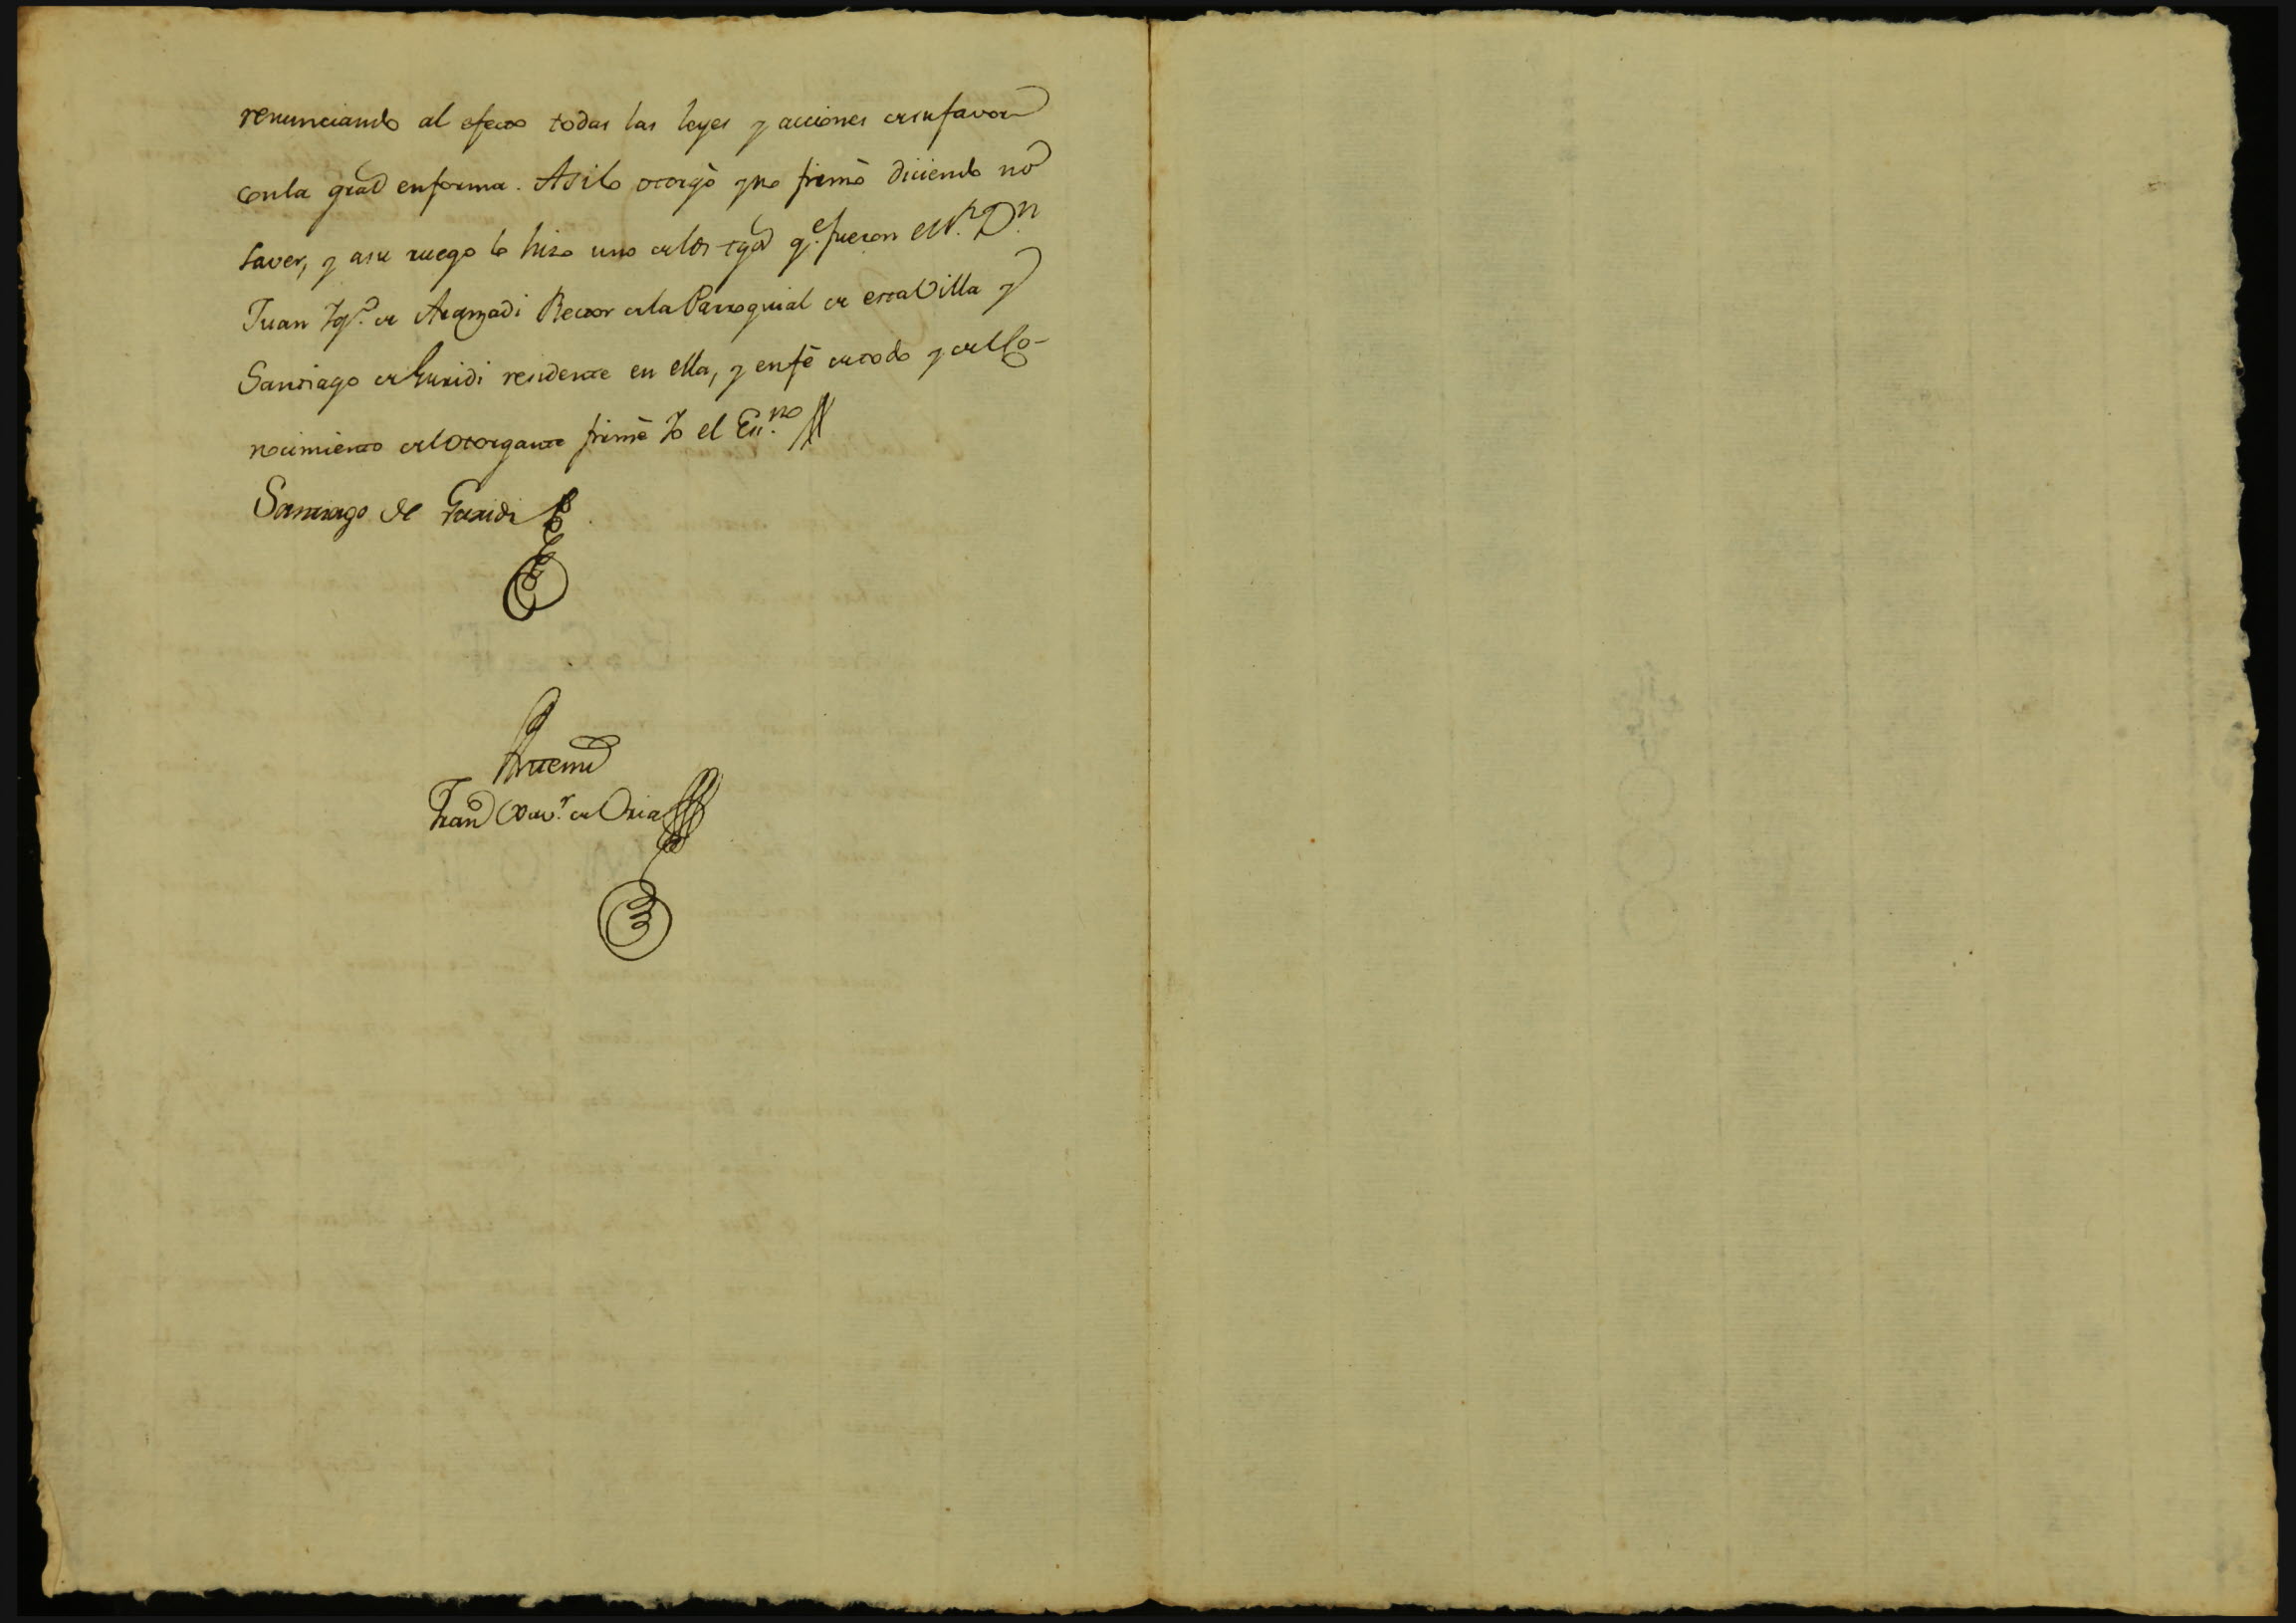 renunciando al efecto todas las leyes y acciones de su favor
con la gral en forma. Asi lo otorgò y no firmò diciendo no
saver, y a su ruego lo hizo uno de los tgos q.e fueron el S.r D.n
Juan Ygn.o de Aranzadi Rector de la Parroquial de esta Villa y
Santiago de Guridi residente en ella, y en fè de todo y del Co-
nocimiento del otorgante firmè Yo el Es.no
Santiago de Guridi
Ante mi
Fran.co Xav.r de Oria